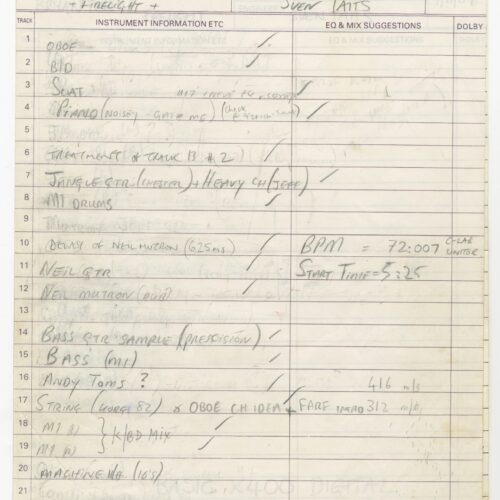 + FIRELIGHT +
SVEN TAITS
TRACK INSTRUMENT INFORMATION ETC EQ & MIX SUGGESTIONS DOLBY
1 OBOE
2 B/D
3
4 PIANO (NOISEY - GATE ME)
5
6 TREATMENT of TRACK 13 # 2)
7 JANGLE GTR (CHESTER) + HEAVY CH (JEFF)
8 M1 DRUMS
9
10 DELAY of NEIL MUTRON (625ms) BPM = 72:007
11 NEIL GTR START TIME = 5:25
12 NEIL MUTRON
13
14 BASS GTR SAMPLE (PRECISION)
15 BASS (M1)
16 ANDY TOMS ? 416 m/s
17 STRING (KORG 82) & OBOE CH IDEA + FARF 312 m/s
18 M1 } K/BD MIX
19 M1
20 MACHINE H/H (16'S)
21